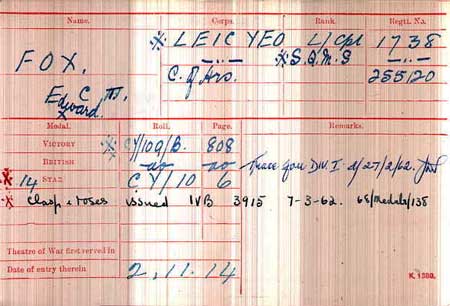 Name. Corps. Rank. Regtl. No.
* LEIC YEO L/Cpl 1738
FOX, —„— *S.Q.M.S —„—
C. of Hrs. 255120
Edward C
x
Medal. Roll. Page. Remarks.
VICTORY * CY/109/B. 808
BRITISH do do Trace for DIV. I. d/27/2/62.
* 14 STAR C.Y/10 6
* Clasp & roses issued IVB 3915 7-3-62. 68/Medals/138
Theatre of War first served in
Date of entry therein 2.11.14
K 1380.